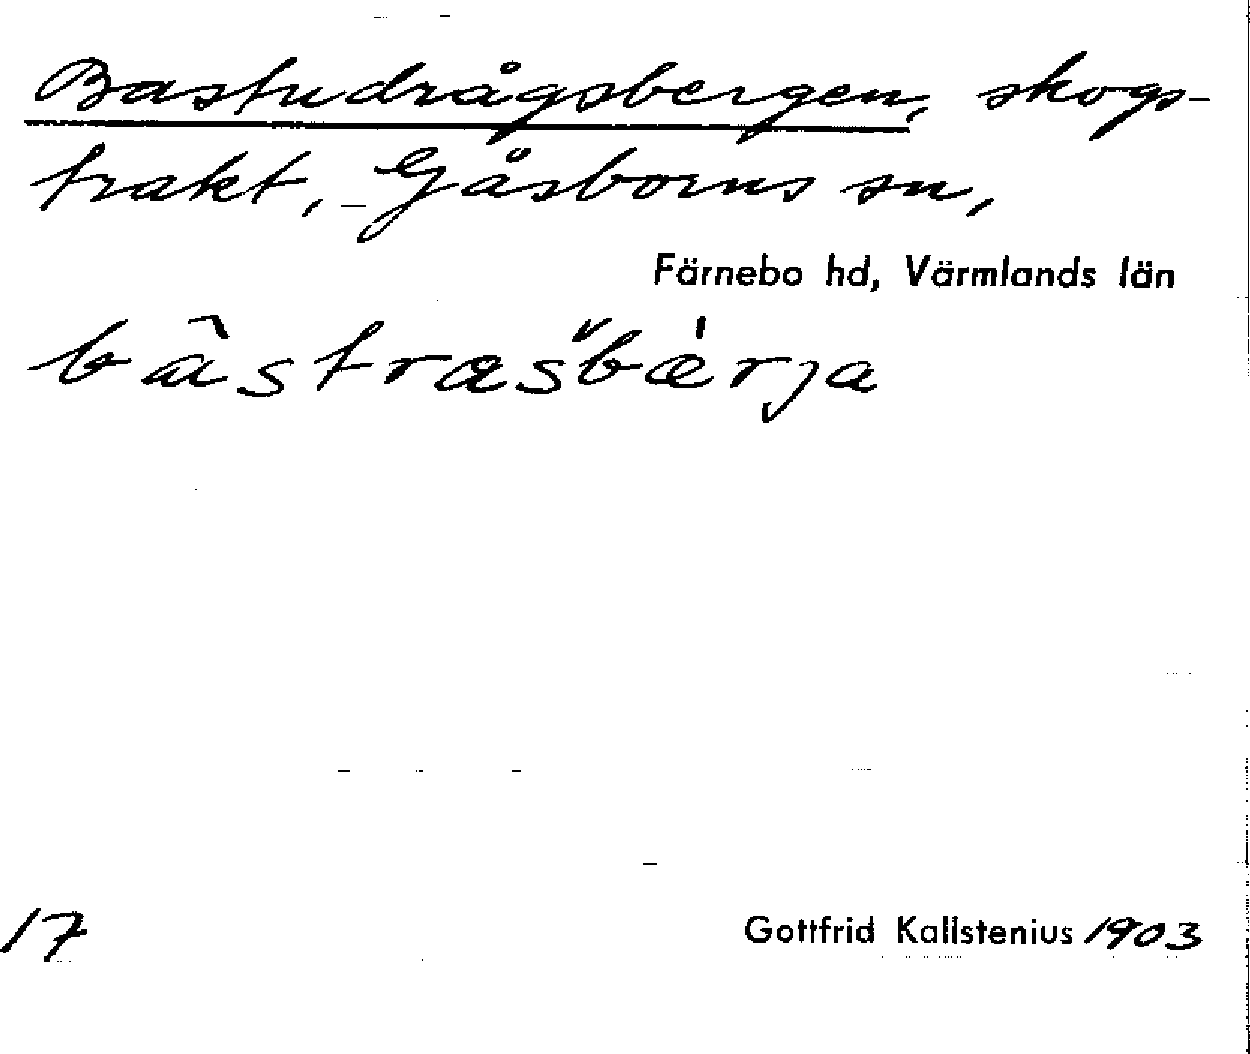 Bastudrågsbergen, skogs-
trakt, Gåsborns sn,
Färnebo hd, Värmlands län
bâstræsbærja
17
Gottfrid Kallstenius 1903